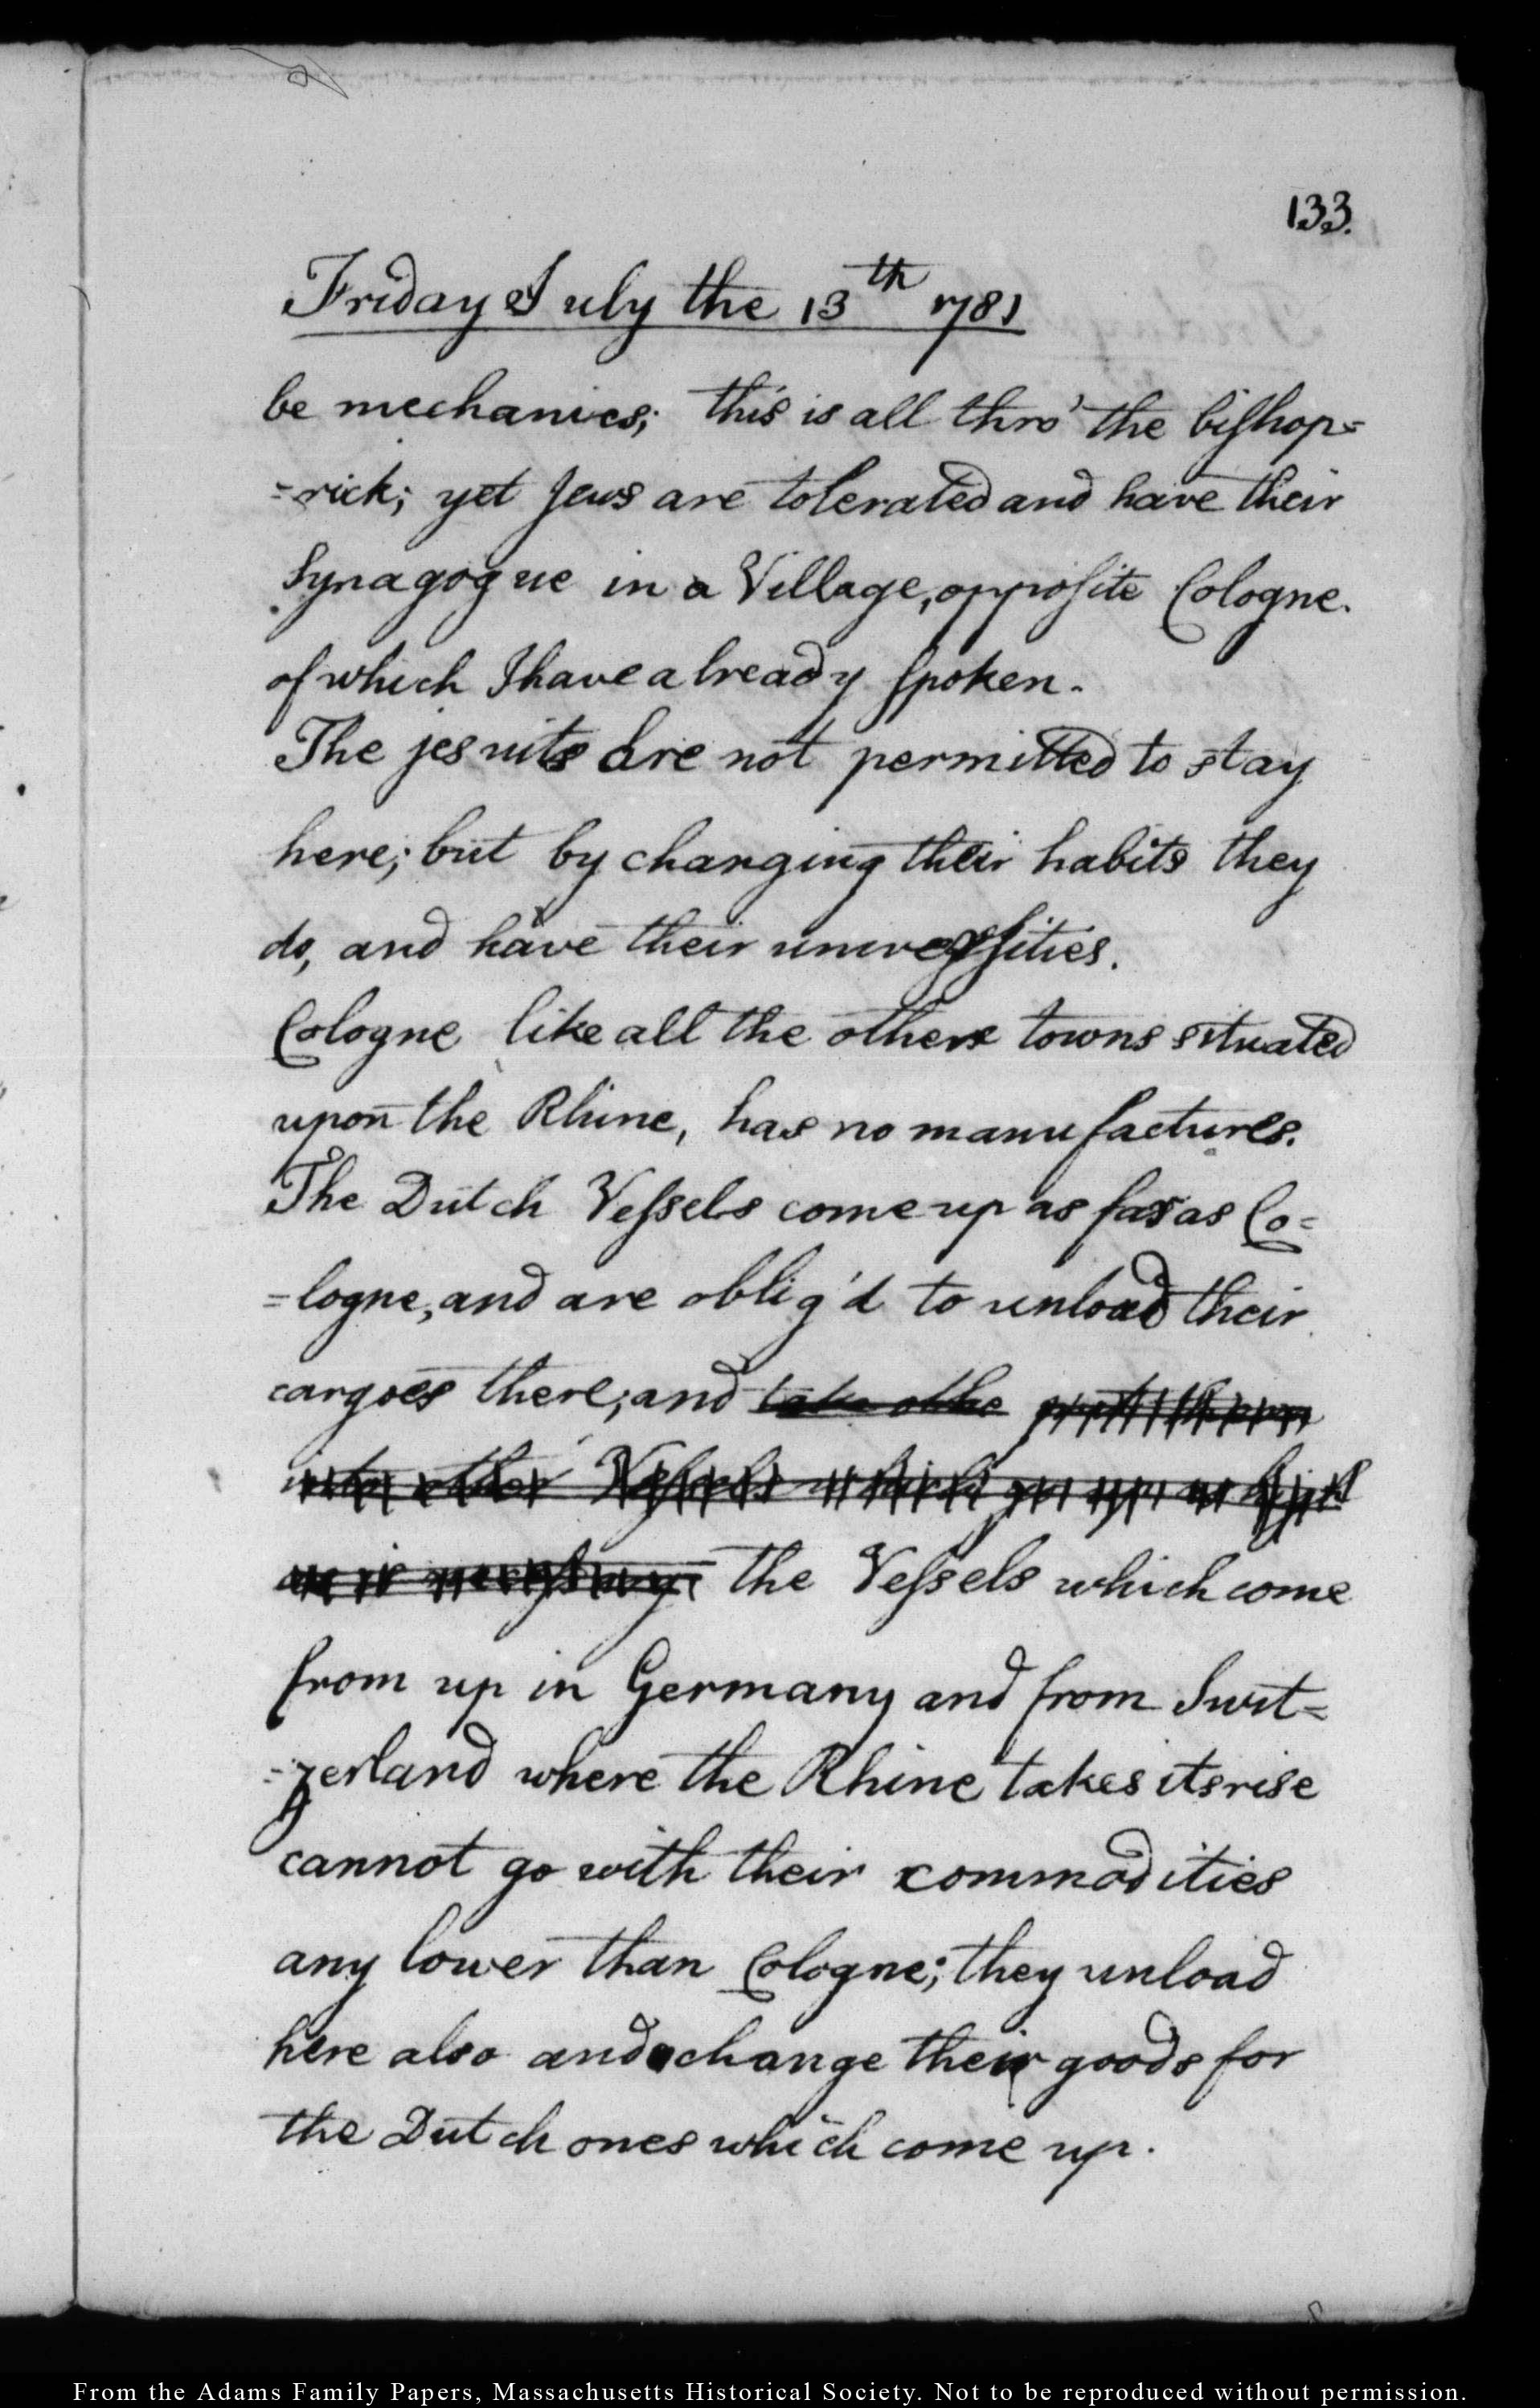 133.
Friday July the 13th 1781
be mechanics; this is all thro' the biſhop=
=rick; yet Jews are tolerated and have their
Synagogue in a Village, oppoſite Cologne.
of which I have already ſpoken.
The jesuits are not permitted to stay
here; but by changing their habits they
do, and have their univerſities.
Cologne like all the other towns situated
upon the Rhine, has no manufactures.
The Dutch Veſsels come up as far as Co=
=logne, and are oblig'd to unload their
cargoes there; and take othe put them
into other Veſsels which go up as high
as is neceſsary. the Veſsels which come
from up in Germany and from Swit=
=zerland where the Rhine takes its rise
cannot go with their commodities
any lower than Cologne; they unload
here also and change their goods for
the Dutch ones which come up.
From the Adams Family Papers, Massachusetts Historical Society. Not to be reproduced without permission.